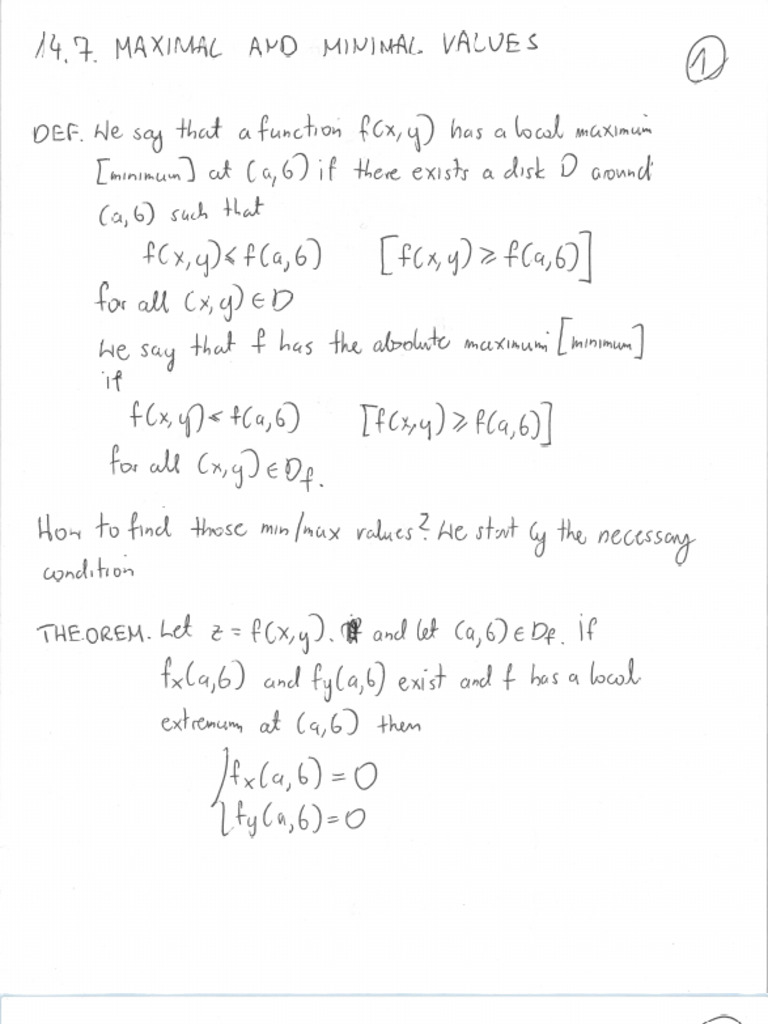 14.7. MAXIMAL AND MINIMAL VALUES
1
DEF. We say that a function f(x,y) has a local maximum
[minimum] at (a,b) if there exists a disk D around
(a,b) such that
f(x,y) ≤ f(a,b) [f(x,y) ≥ f(a,b)]
for all (x,y) ∈ D
We say that f has the absolute maximum [minimum]
if
f(x,y) ≤ f(a,b) [f(x,y) ≥ f(a,b)]
for all (x,y) ∈ Df.
How to find those min/max values? We start by the necessary
condition
THEOREM. Let z = f(x,y). and let (a,b) ∈ Df. If
fx(a,b) and fy(a,b) exist and f has a local
extremum at (a,b) then
{ fx(a,b) = 0
{ fy(a,b) = 0